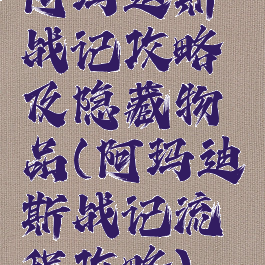 阿玛迪斯
战记攻略
及隐藏物
品(阿玛迪
斯战记流
程攻略)